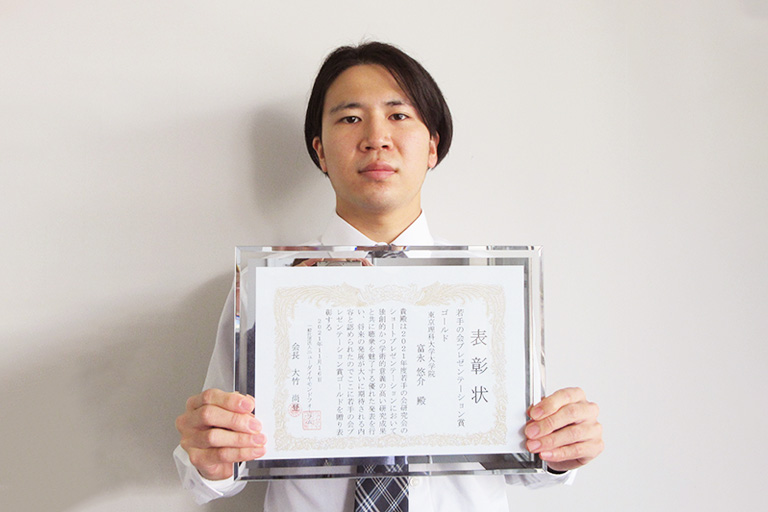 表彰状
若手の会プレゼンテーション賞
ゴールド
東京理科大学大学院
富永 悠介 殿
貴殿は2021年度若手の会研究会の
ショートプレゼンテーションにおいて
独創的かつ学術的意義の高い研究成果
と共に聴衆を魅了する優れた発表を行
い、将来の発展が大いに期待される内
容と認められたのでここに若手の会プ
レゼンテーション賞ゴールドを贈り表
彰する
2021年11月16日
一般社団法人ニューダイヤモンドフォーラム
会長 大竹 尚登